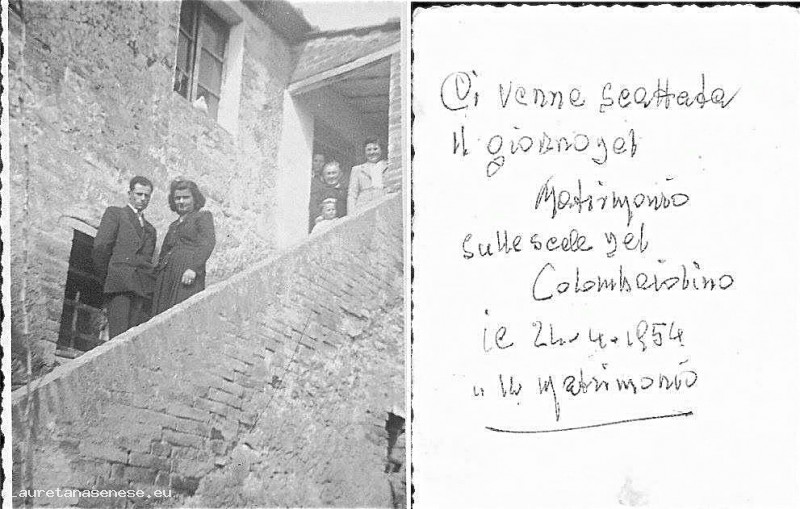 Ci venne scattada
Il giorno del
Matrimonio
sulle scale del
Colombaiolino
il 24.4.1954
" Il Matrimonio
Lauretanasenese.eu